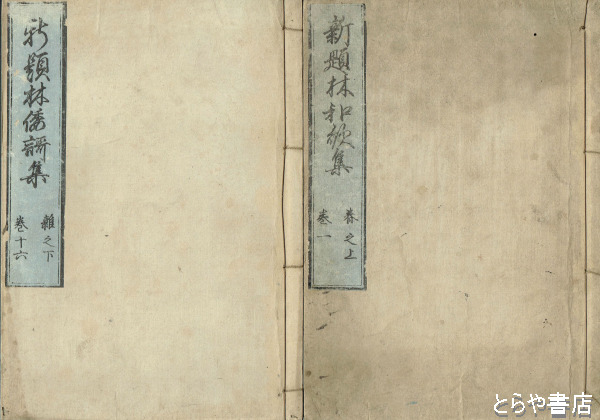 新題林和歌集
春之上
巻一
新題林倭謌集
雑之下
巻十六
とらや書店